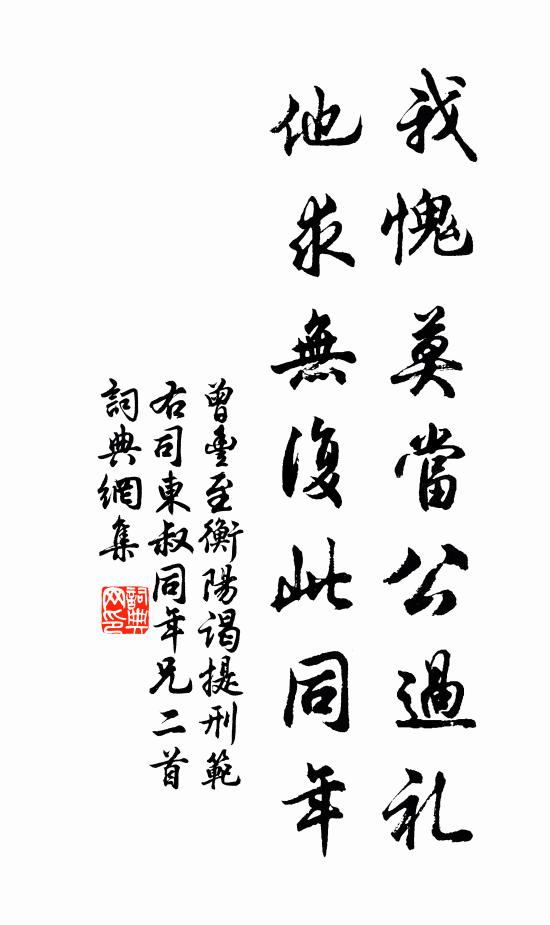 我愧莫當公過礼
他求無復此同年
曾豊至衡陽謁提刑範
右司東叔同年兄二首
詞典網集
詞典
网印